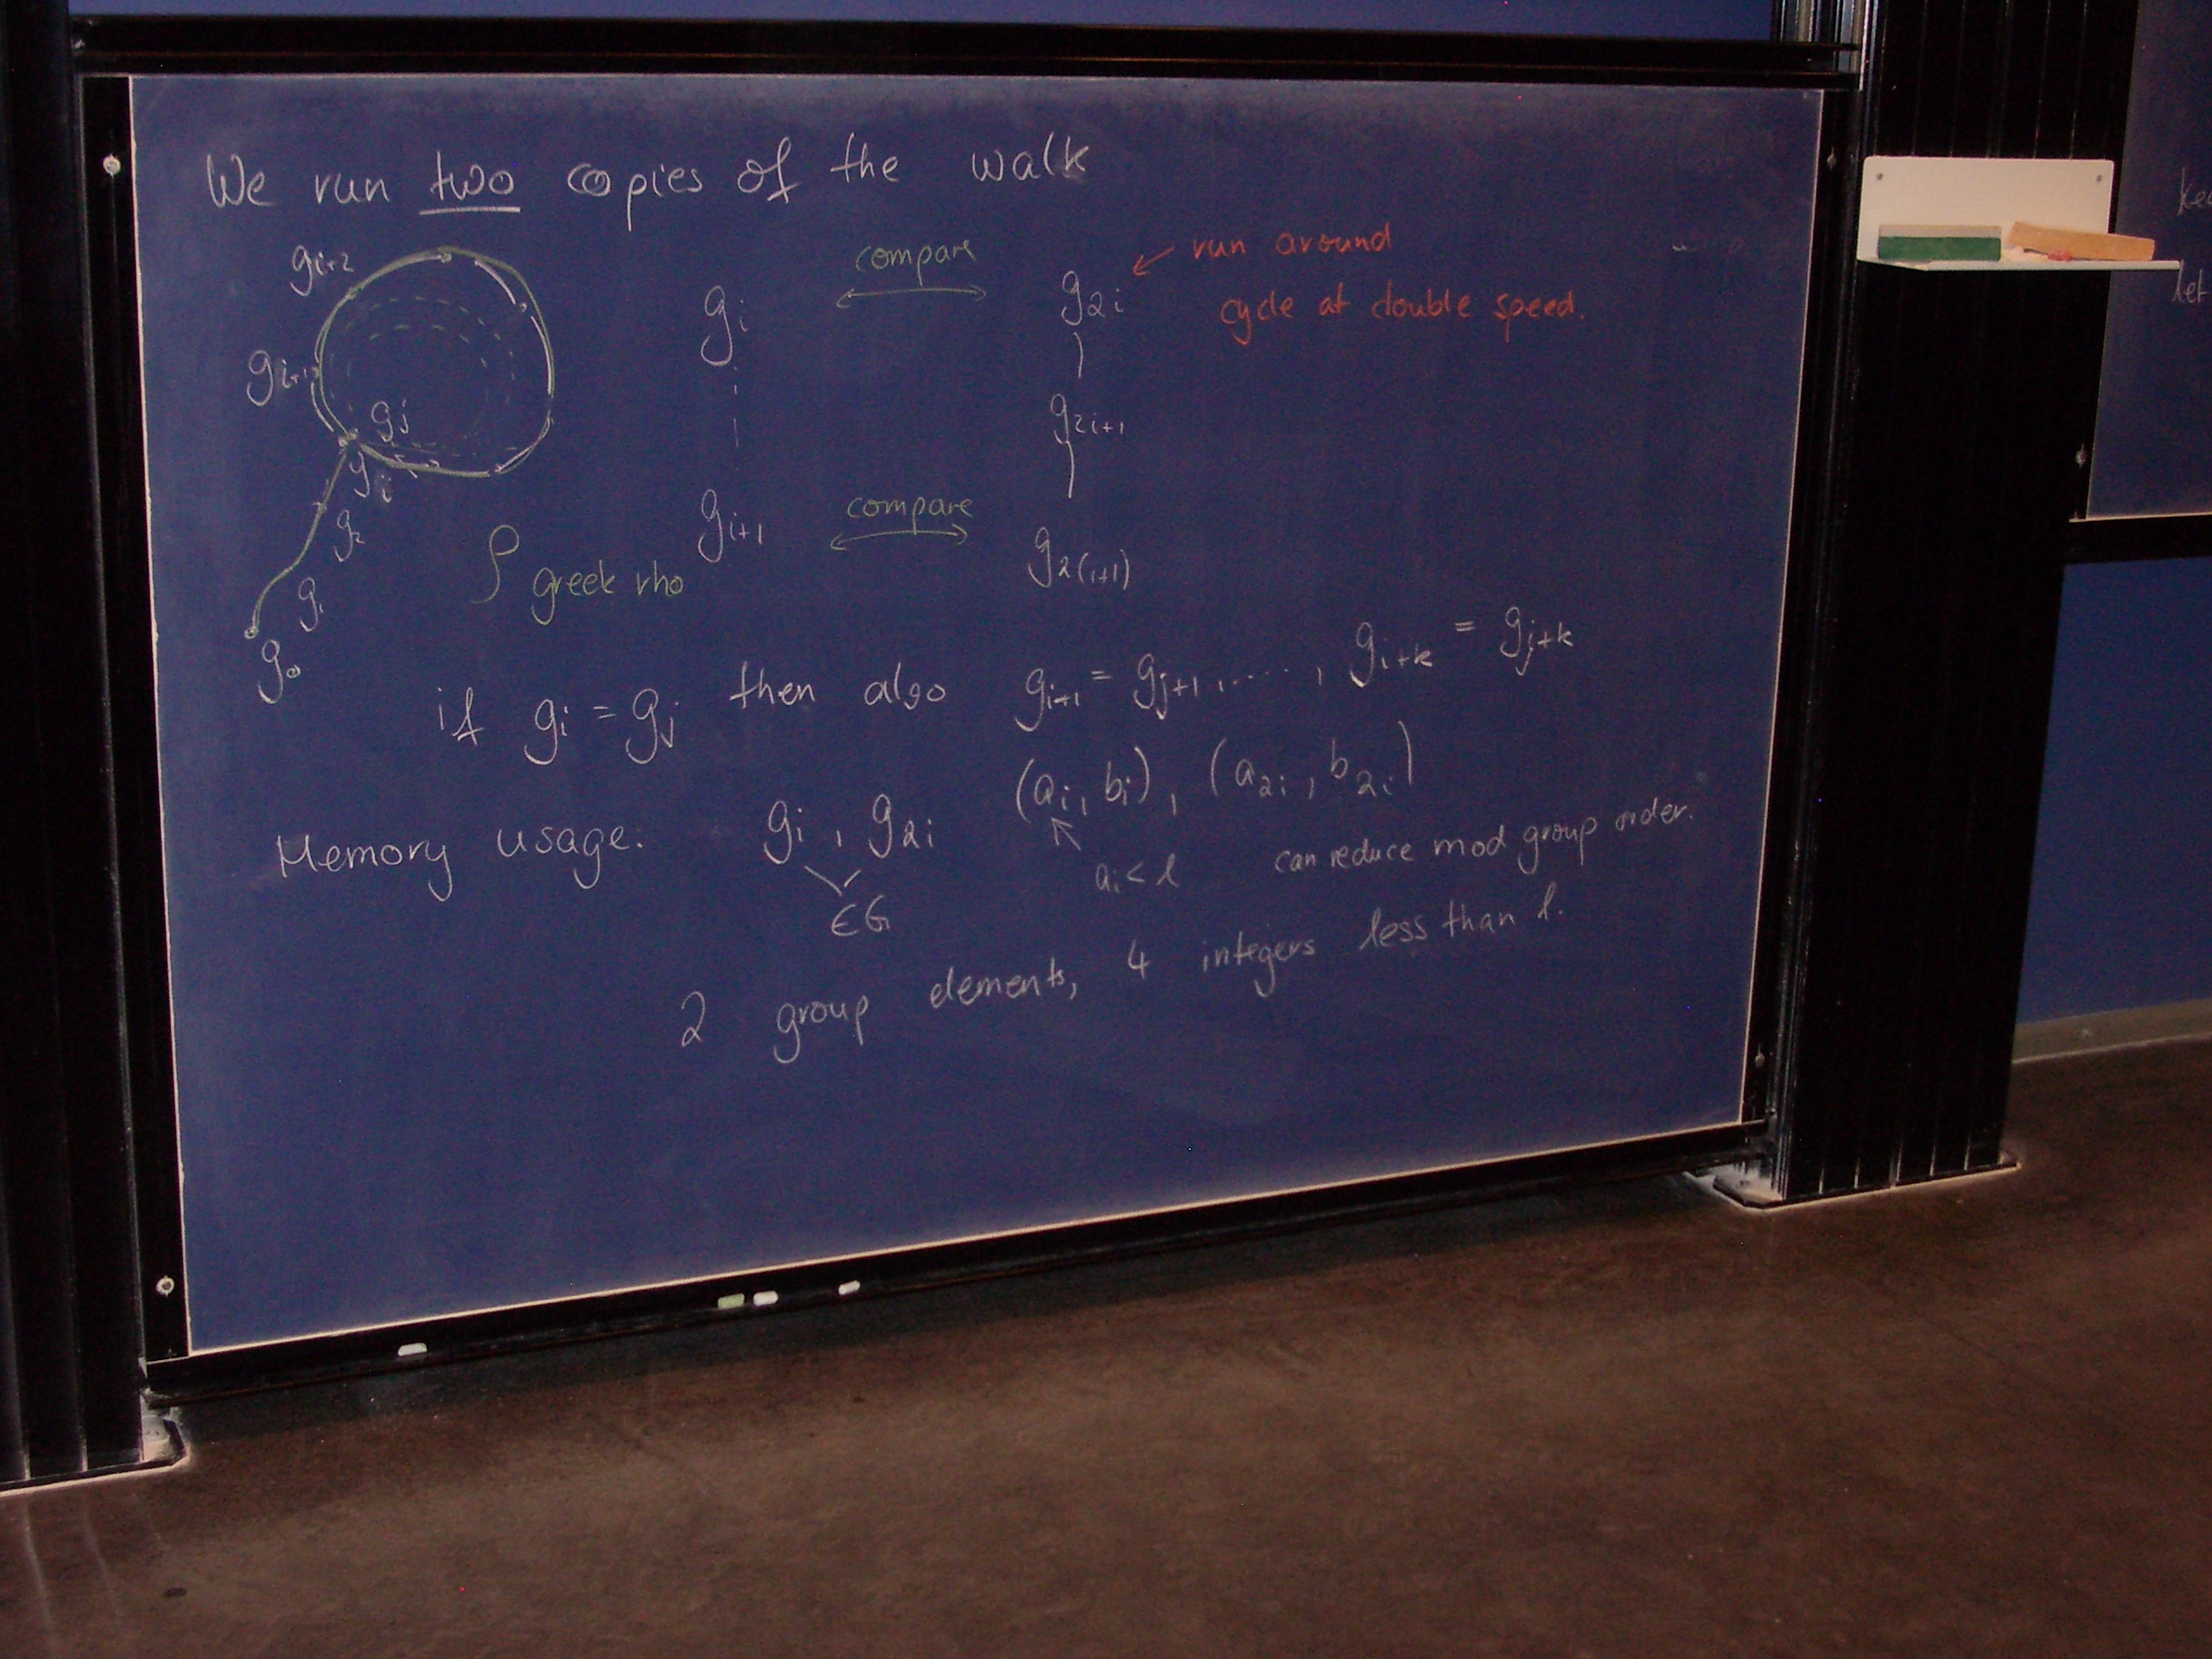 We run two copies of the walk
g_{i+2}
g_{i+1}
g_j
g_i
g_2
g_1
g_0
ρ greek rho
g_i compare g_{2i} ← run around
cycle at double speed.
g_{2i+1}
g_{i+1} compare g_{2(i+1)}
if g_i = g_j then also g_{i+1} = g_{j+1}, ....., g_{i+k} = g_{j+k}
Memory usage. g_i, g_{2i} (a_i, b_i), (a_{2i}, b_{2i})
∈G a_i < l can reduce mod group order.
2 group elements, 4 integers less than l.
let